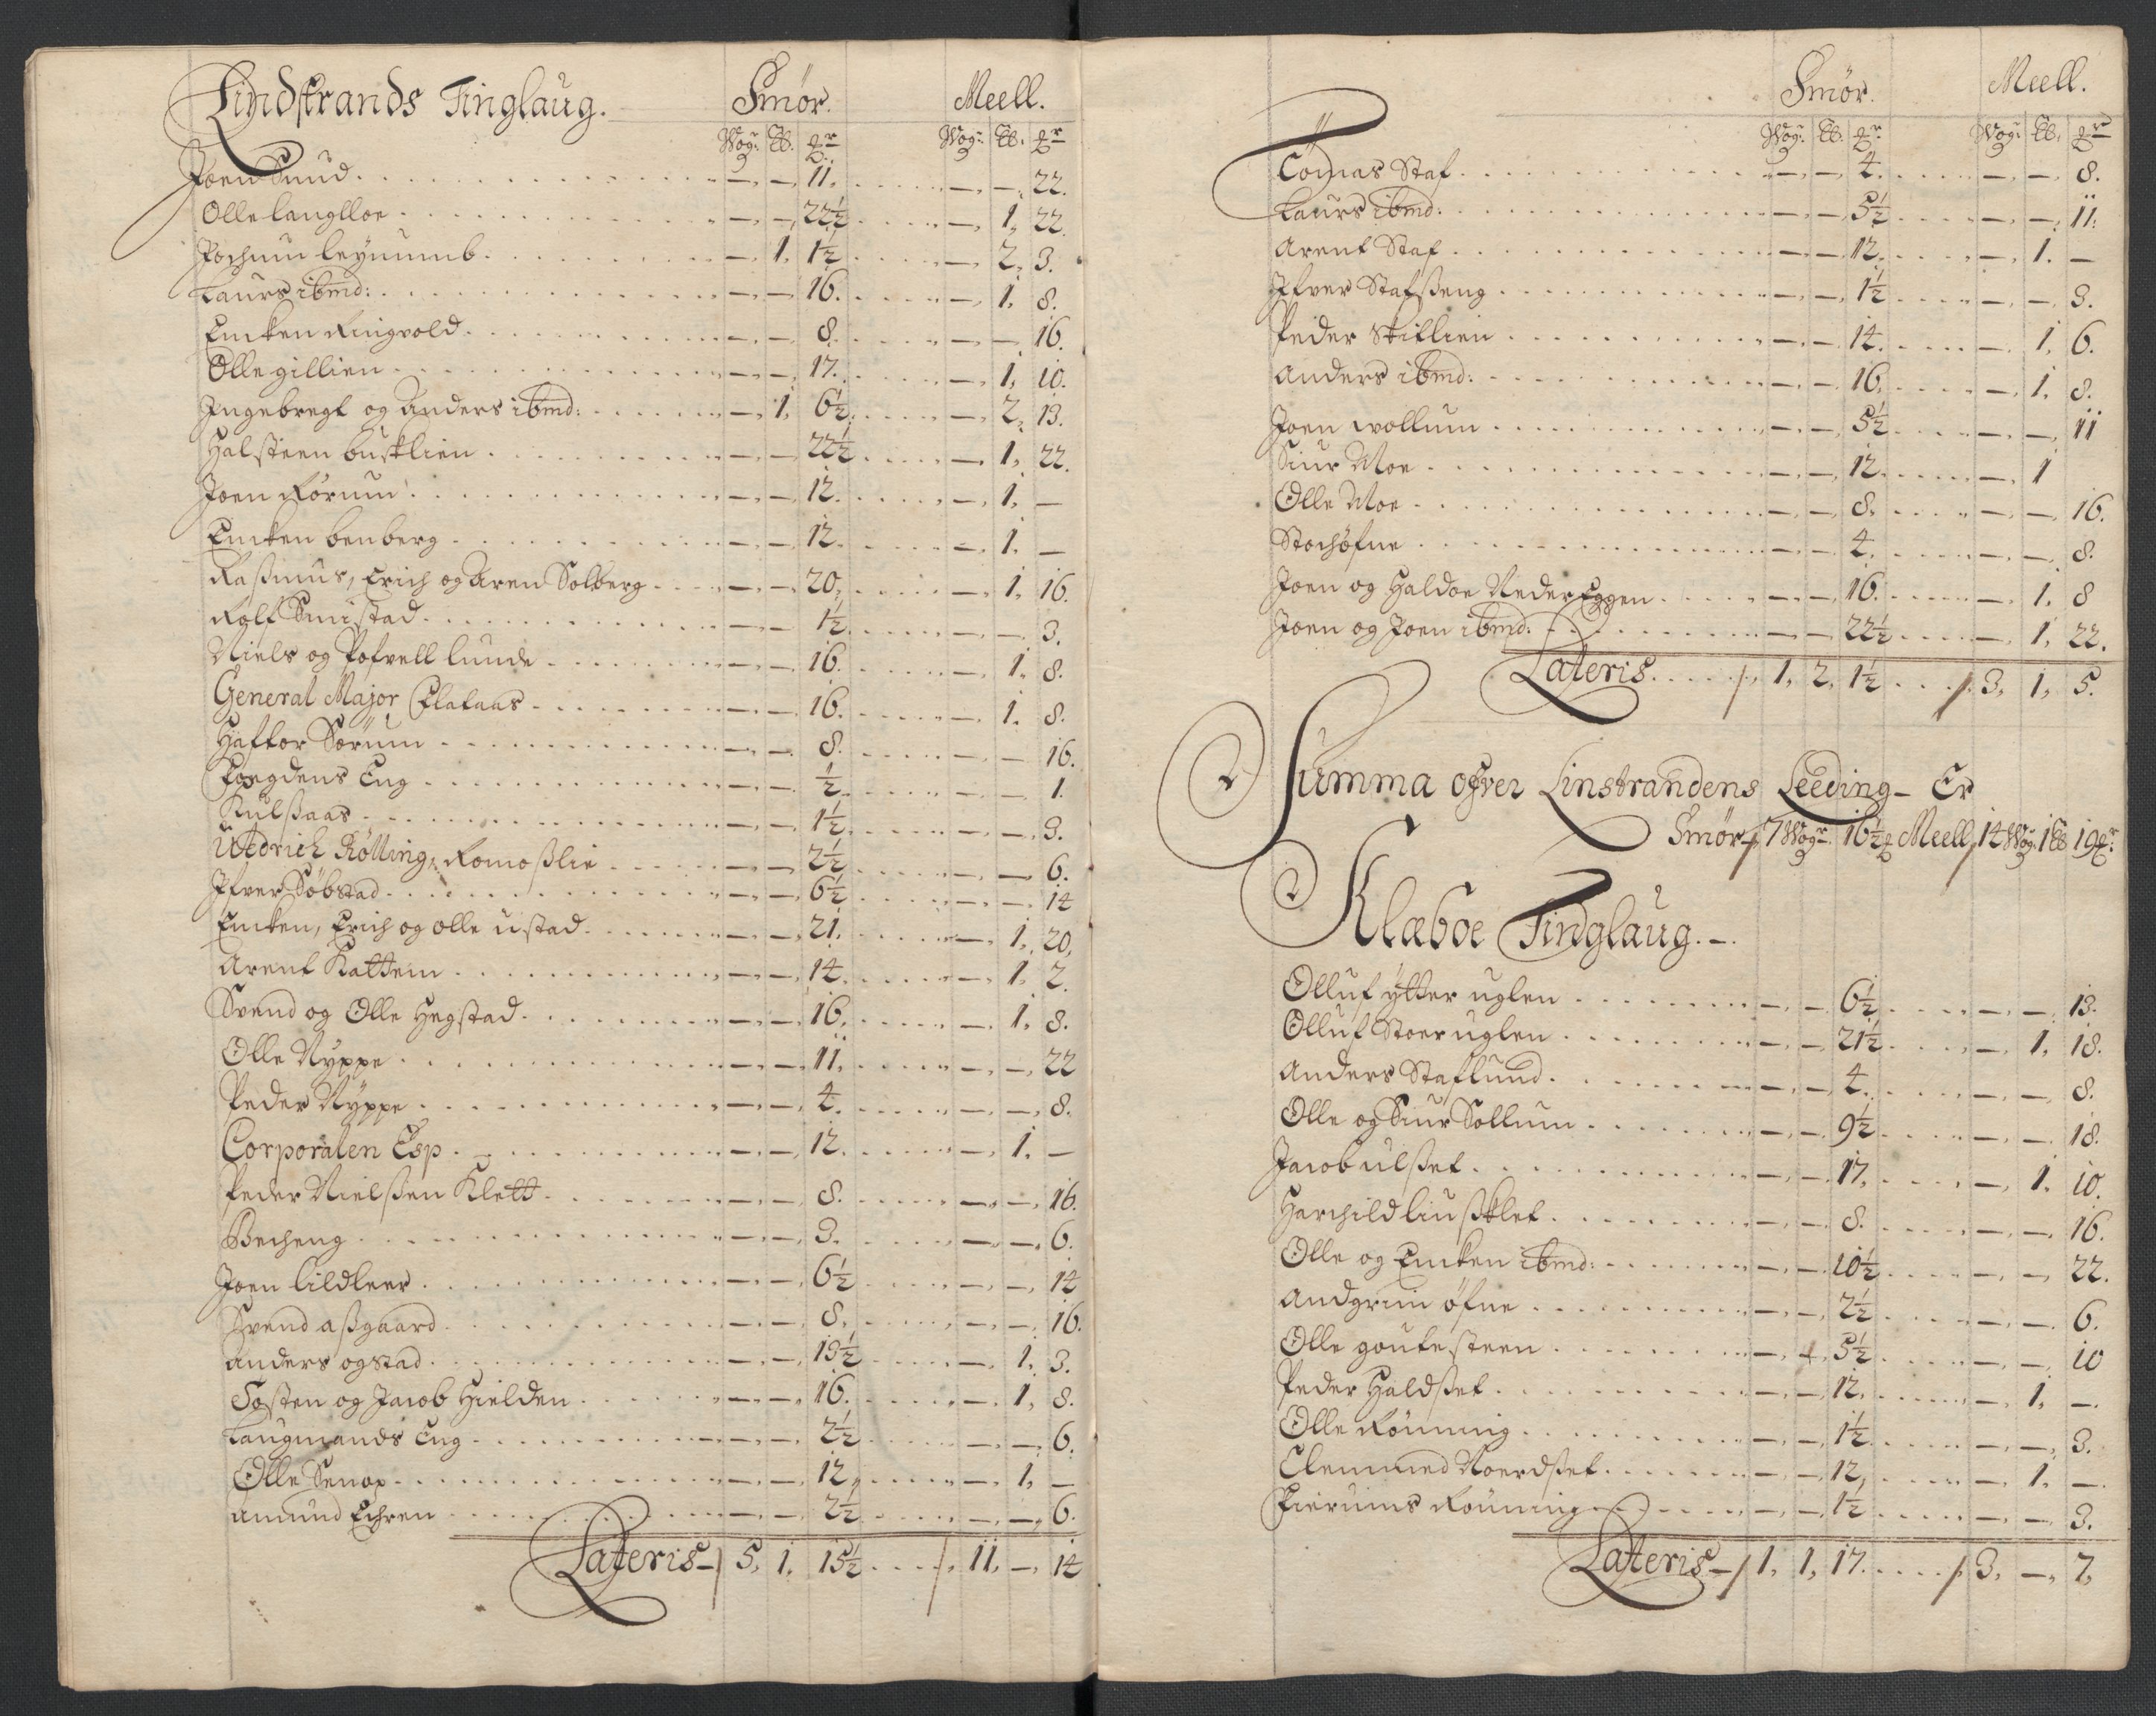 Lindstrands Tinglaug. Smør. Meell.
Wog: lb. qr Wog: lb. qr
Joen Sund - - 11. - - 22.
Olle langlloe - - 22½ - 1. 22.
Jochum leynumb - 1. 1½ - 2. 3.
Laurs ibmd: - - 16. - 1. 8.
Encken Ringvold - - 8. - - 16.
Olle gillien - - 17. - 1. 10.
Ingebregt og Anders ibmd: - 1. 6½ - 2. 13.
Halsteen busklien - - 22½ - 1. 22.
Joen Rørum - - 12. - 1. -
Encken benberg - - 12. - 1. -
Rasmus, Erich og Aren Solberg - - 20. - 1. 16.
Rolf Smistad - - 1½ - - 3.
Niels og Pofvell lunde - - 16. - 1. 8.
General Major - - 16. - 1. 8.
Haftor Sørum - - 8. - - 16.
Fogdens Eng - - ½ - - 1.
Kulsaas - - 1½ - - 3.
Uldrich Rølling, Romoslie - - 2½ - - 6.
Ifver Søbstad - - 6½ - - 14
Encken, Erich og olle ustad - - 21. - 1. 20.
Arent Kattem - - 14. - 1. 2.
Svend og Olle Hegstad - - 16. - 1. 8.
Olle Nyppe - - 11. - - 22
Peder Nyppe - - 4. - - 8.
Corporalen Esp - - 12. - 1. -
Peder Nielsen Klett - - 8. - - 16.
Becheng - - 3. - - 6.
Joen lildleer - - 6½ - - 14
Svend assgaard - - 8. - - 16.
Anders ogstad - - 13½ - 1. 3.
Tosten og Jacob Hielden - - 16. - 1. 8.
Laugmands Eng - - 2½ - - 6.
Olle Senop - - 12. - 1. -
Amund Echren - - 2½ - - 6.
Lateris - 5. 1. 15½ 11. - 14
Smør. Meell.
Wog: lb. qr Wog: lb. qr
Tomas Staf - - 4. - - 8.
Laurs ibmd: - - 5½ - - 11.
Arent Staf - - 12. - 1. -
Ifver Stafseng - - 1½ - - 3.
Peder Skiflien - - 14. - 1. 6.
Anders ibmd: - - 16. - 1. 8.
Joen wollum - - 5½ - - 11
Siur Moe - - 12. - 1
Olle Moe - - 8. - - 16.
Stochøfne - - 4. - - 8.
Joen og Haldoe Neder Eggen - - 16. - 1. 8
Joen og Joen ibmd. - - 22½ - 1. 22.
Lateris 1. 2. 1½ 3. 1. 5.
Summa ofver Linstrandens Leeding - Er
Smør 7 Wogr 16½ Meell 14 Wog: 1 lb 19 qr.
Klæboe Tindglaug. -
Olluf ytter uglen - - 6½ - - 13.
Olluf Stoer uglen - - 21½ - 1. 18.
Anders Staflund - - 4. - - 8.
Olle og Siur Sollum - - 9½ - - 18.
Jacob ulset - - 17. - 1. 10.
Harchild liusklet - - 8. - - 16.
Olle og Encken ibmd: - - 10½ - - 22.
Andgrim øfne - - 2½ - - 6.
Olle goutesteen - - 5½ - - 10
Peder Haldset - - 12. - 1. -
Olle Rønning - - 1½ - - 3.
Clemmed Noerdset - - 12. - 1. -
Rønning - - 1½ - - 3.
Lateris - 1. 1. 17. 3. - 7.